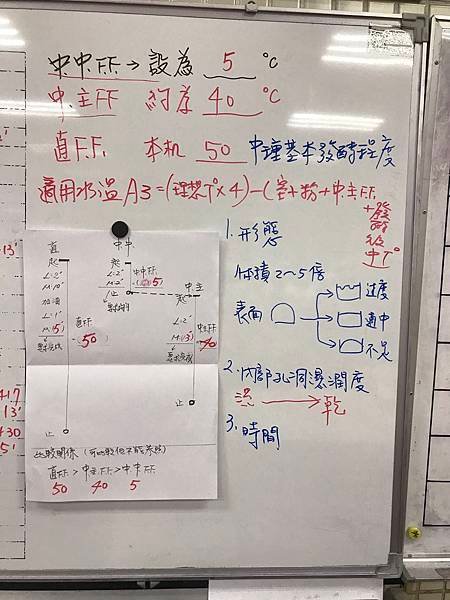 中中F.F. → 設為 5 °C
中.主FF 約為 40 °C
直F.F. 本机 50
中種基本發酵程度
適用水溫A3=(理想T°×4)-(室+粉+中.主F.F.
+發酵後中T°
1. 形態
体積2~5倍
表面
過度
適中
不足
2. 內部孔洞濕潤度
濕 → 乾
3. 時間
直
起
L:2'
M:10'
加油
L:1'
M:(5')
直F.F.
(50)
止
中.中
起
L:2'
M:2'
止
中中F.F.
(5)
中.主
起
L:2'
M:(3')
中主F.F.
40
止
比較關係
直F.F. > 中主F.F. > 中中F.F.
50 40 5
13'
+17
13'
+30
5'